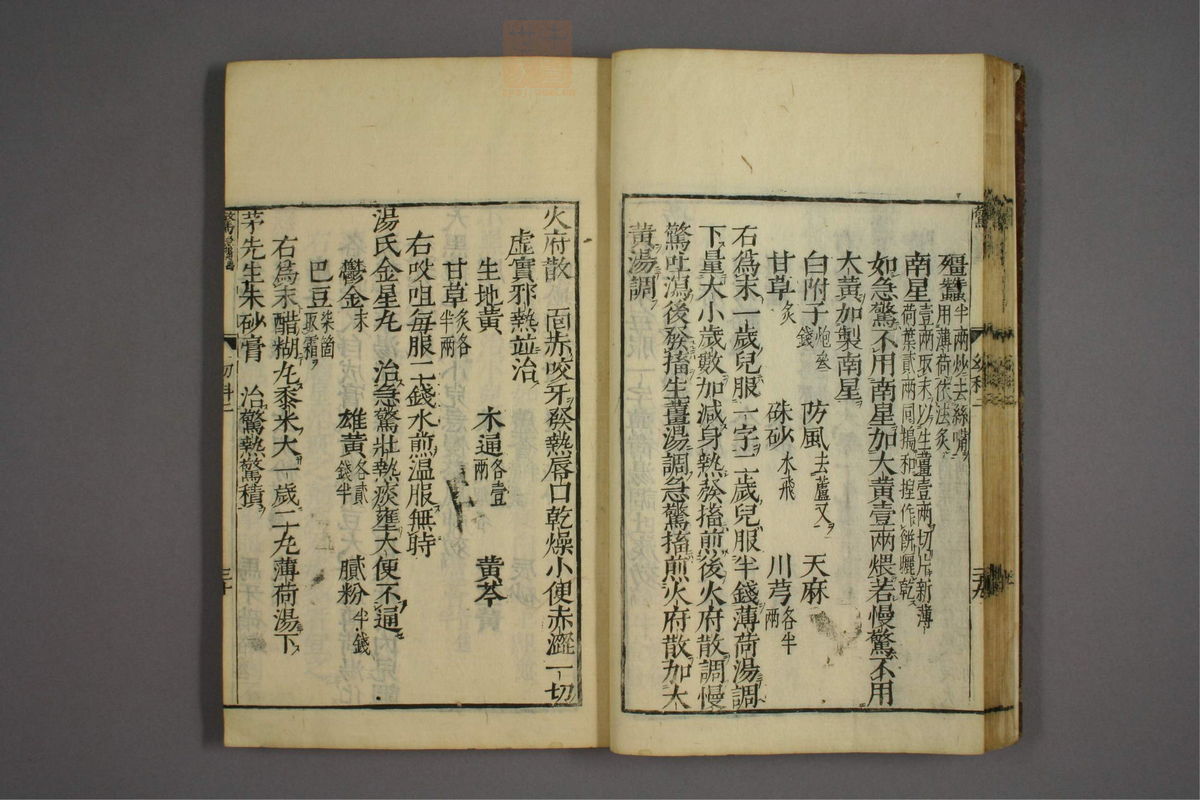 殭蠶半兩炒去絲嘴用薄荷依法炙
南星壹兩取末以生薑壹兩切片新薄荷葉貳兩同搗和捏作餅曬乾
如急驚不用南星加大黃壹兩煨若慢驚不用
大黃加製南星
白附子炮叁錢　防風去蘆叉　天麻
甘草炙　硃砂水飛　川芎各半兩
右為末一歲兒服一字二歲兒服半錢薄荷湯調
下量大小歲數加減身熱發搐煎後火府散調慢
驚吐瀉後發搐生薑湯調急驚搐煎火府散加大
黃湯調
火府散　面赤咬牙發熱唇口乾燥小便赤澀一切
虛實邪熱竝治
生地黃　木通各壹兩　黃芩
甘草炙各半兩
右㕮咀每服二錢水煎溫服無時
湯氏金星丸　治急驚壯熱痰壅大便不通
鬱金末　雄黃各貳錢半　膩粉半錢
巴豆柒箇取霜
右為末醋糊丸黍米大一歲二丸薄荷湯下
茅先生朱砂膏　治驚熱驚積
幼科二
三十